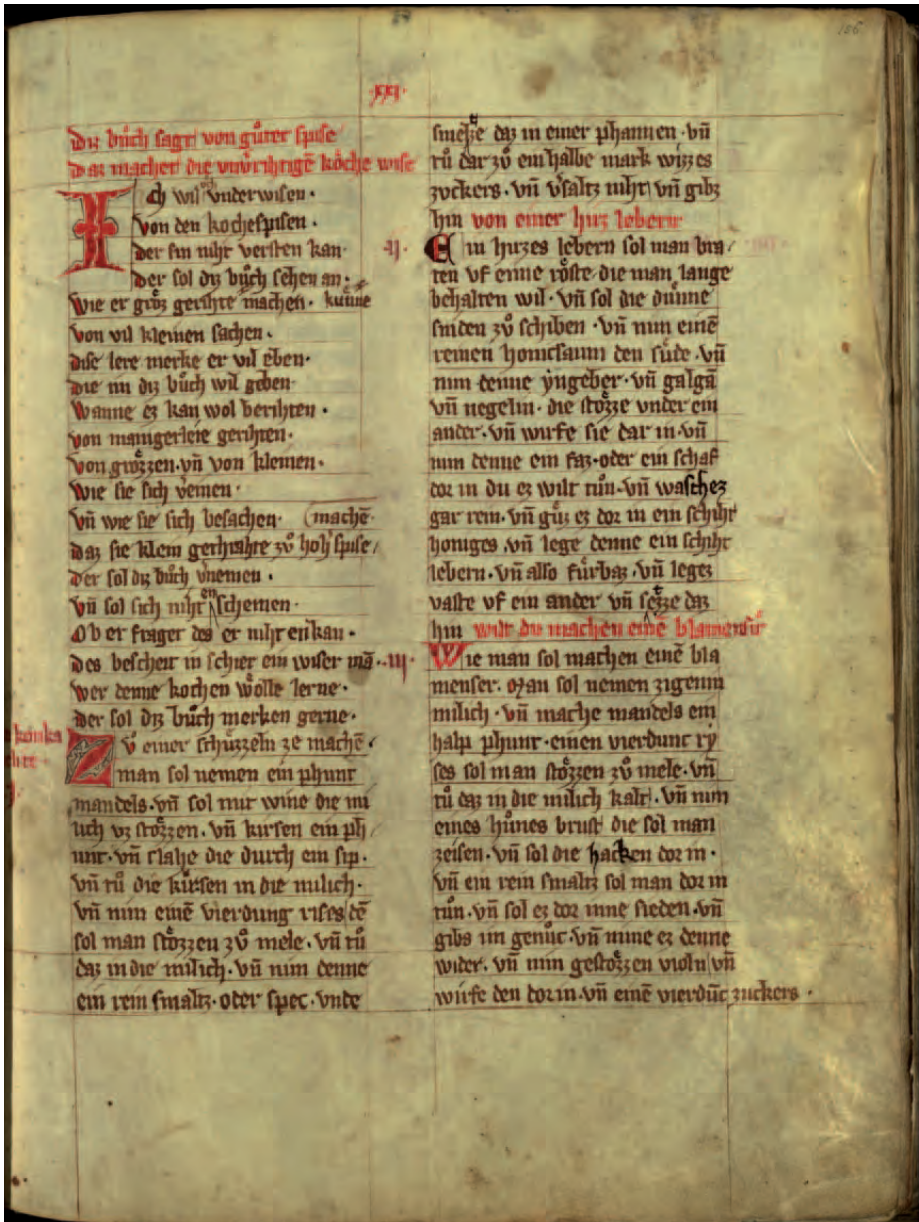 156
.xxi.
Diz bůch sagt von gůter spise
daz machet die vnv̊rihtigē kóche wise
Ich wil vnderwisen ·
von den kochespisen ·
der sin niht versten kan ·
der sol diz bůch sehen an ·
wie er groͤz gerihte machen · kuͤnne
von vil kleinen sachen ·
dise lere merke er vil eben ·
die im diz bůch wil geben ·
wanne ez kan wol berihten ·
von manigerleie gerihten ·
von groͤzzen · vn̄ von kleinen ·
wie sie sich v̓einen ·
vn̄ wie sie sich besachen · machē ·
daz sie klein gerihte zů hoh̓ spise
der sol diz bůch v̓nemen ·
vn̄ sol sich niht enschemen ·
Ob er fraget des er niht enkan ·
des bescheit in schier ein wiser mā ·
wer denne kochen woͤlle lerne ·
der sol diz bůch merken gerne ·
konka
vlite
Zů einer schuͤzzeln ze machē
man sol nemen ein phunt
mandels · vn̄ sol mit wine die mi
lich vz stoͤzzen · vn̄ kirsen ein ph
unt · vn̄ slahe die durch ein sip ·
vn̄ tů die kirsen in die milich ·
vn̄ nim einē vierdung rises dē
sol man stoͤzzen zů mele · vn̄ tů
daz in die milich · vn̄ nim denne
ein rein smaltz · oder spec · vnde
smeltze daz in einer phannen · vn̄
tů dar zů ein halbe mark wizzes
zvckers · vn̄ v̓saltz niht vn̄ gibz
hin von einer hirz lebern
.ij. Ein hirzes lebern sol man bra
ten vf eime roͤste die man lange
behalten wil · vn̄ sol die duͤnne
sniden zů schiben · vn̄ nim einē
reinen honicsaum den suͤde · vn̄
nim denne yngeber · vn̄ galgā
vn̄ negelin · die stoͤzze vnder ein
ander · vn̄ wirfe sie dar in · vn̄
nim denne ein faz · oder ein schaf
dor in du ez wilt tůn · vn̄ waschez
gar rein · vn̄ guͤz ez dor in ein schiht
honiges · vn̄ lege denne ein schiht
lebern · vn̄ also fuͤrbaz · vn̄ legez
vaste vf ein ander vn̄ setze daz
hin wilt du machen einē blamensir
.iij. Wie man sol machen einē bla
menser · Man sol nemen zigenin
milich · vn̄ mache mandels ein
halp phunt · einen vierdunc ry
ses sol man stoͤzzen zů mele · vn̄
tů daz in die milich kalt · vn̄ nim
eines hůnes brust die sol man
zeisen · vn̄ sol die hacken dor in ·
vn̄ ein rein smaltz sol man dor in
tůn · vn̄ sol ez dor inne sieden · vn̄
gibs im genůc · vn̄ nime ez denne
wider · vn̄ nim gestoͤzzen violn vn̄
wirfe den dor in · vn̄ einē vierdūc zuckers ·